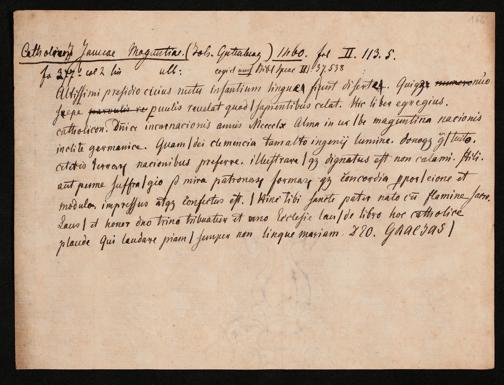 166
Catholicon Januae Maguntiae. (Joh. Gutenberg) 1460. fol. II. 113. 5.
fo 373 col 2 lin ult: Bibl Spenc III. 37. 538
Altissimi presidio cuius nutu infantium lingue fiunt diserte. Quiqz numero nio
sepe parvulis re pvulis revelat quod sapientibus celat. Hic liber egregius.
catholicon. Dnice incarnacionis annis Mcccclx Alma in urbe maguntina nacionis
inclite germanice. Quam dei clemencia tam alto ingenij lumine. donoqz gratuito.
ceteris terrarum nacionibus preferre. illustrare qz dignatus est non calami. stili.
aut penne suffragio sz mira patronarz formarz qz concordia pporcione et
modulo. impressus atqz confectus est. Hinc tibi sancte pater nato cu flamine sacro.
Laus et honor dno trino tribuatur et uno Ecclesie laude libro hoc catholice
plaude Qui laudare piam semper non lingue mariam. DEO. GRACIAS